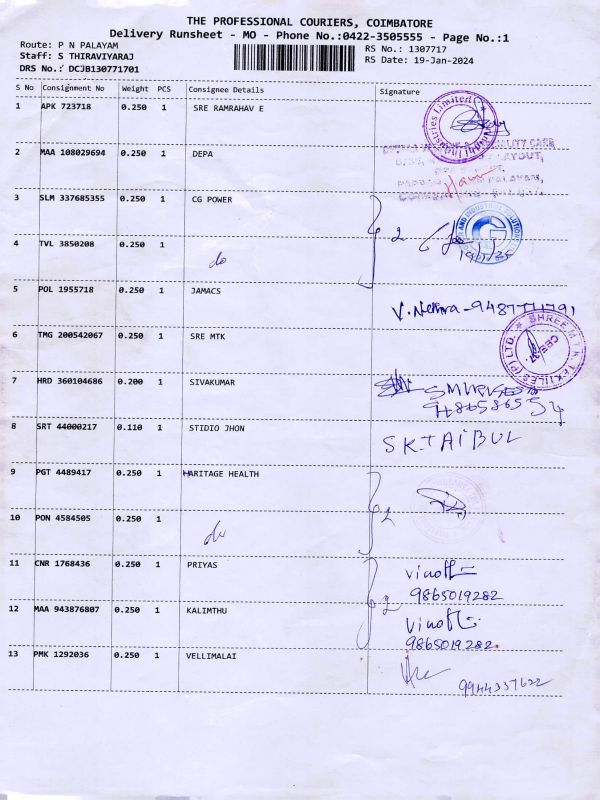 THE PROFESSIONAL COURIERS, COIMBATORE
Delivery Runsheet - MO - Phone No.:0422-3505555 - Page No.:1
Route: P N PALAYAM
RS No.: 1307717
Staff: S THIRAVIYARAJ
RS Date: 19-Jan-2024
DRS No.: DCJB130771701
S No Consignment No Weight PCS Consignee Details Signature
1 APK 723718 0.250 1 SRE RAMRAHAV E
2 MAA 108029694 0.250 1 DEPA
3 SLM 337685355 0.250 1 CG POWER
2
4 TVL 3850208 0.250 1 do
5 POL 1955718 0.250 1 JAMACS
6 TMG 200542067 0.250 1 SRE MTK
7 HRD 360104686 0.200 1 SIVAKUMAR
8 SRT 44000217 0.110 1 STIDIO JHON
SK.TAIBUL
9 PGT 4489417 0.250 1 HARITAGE HEALTH
2
10 PON 4584505 0.250 1 do
11 CNR 1768436 0.250 1 PRIYAS
9865019282
2
12 MAA 943876807 0.250 1 KALIMTHU
9865019282.
13 PMK 1292036 0.250 1 VELLIMALAI
9944337622